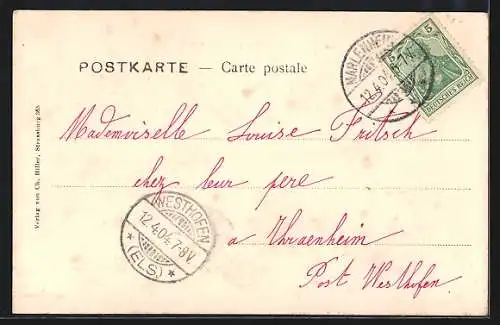 POSTKARTE — Carte postale
MARLENHEIM
12.4.04. 7-
5
DEUTSCHES REICH
Mademoiselle Louise Fritsch
chez leur pere
a Ihraenheim
Post Westhofen
WESTHOFEN
12.4.04. 7-8V.
* (ELS.) *
Verlag von Ch. Hiller, Strassburg